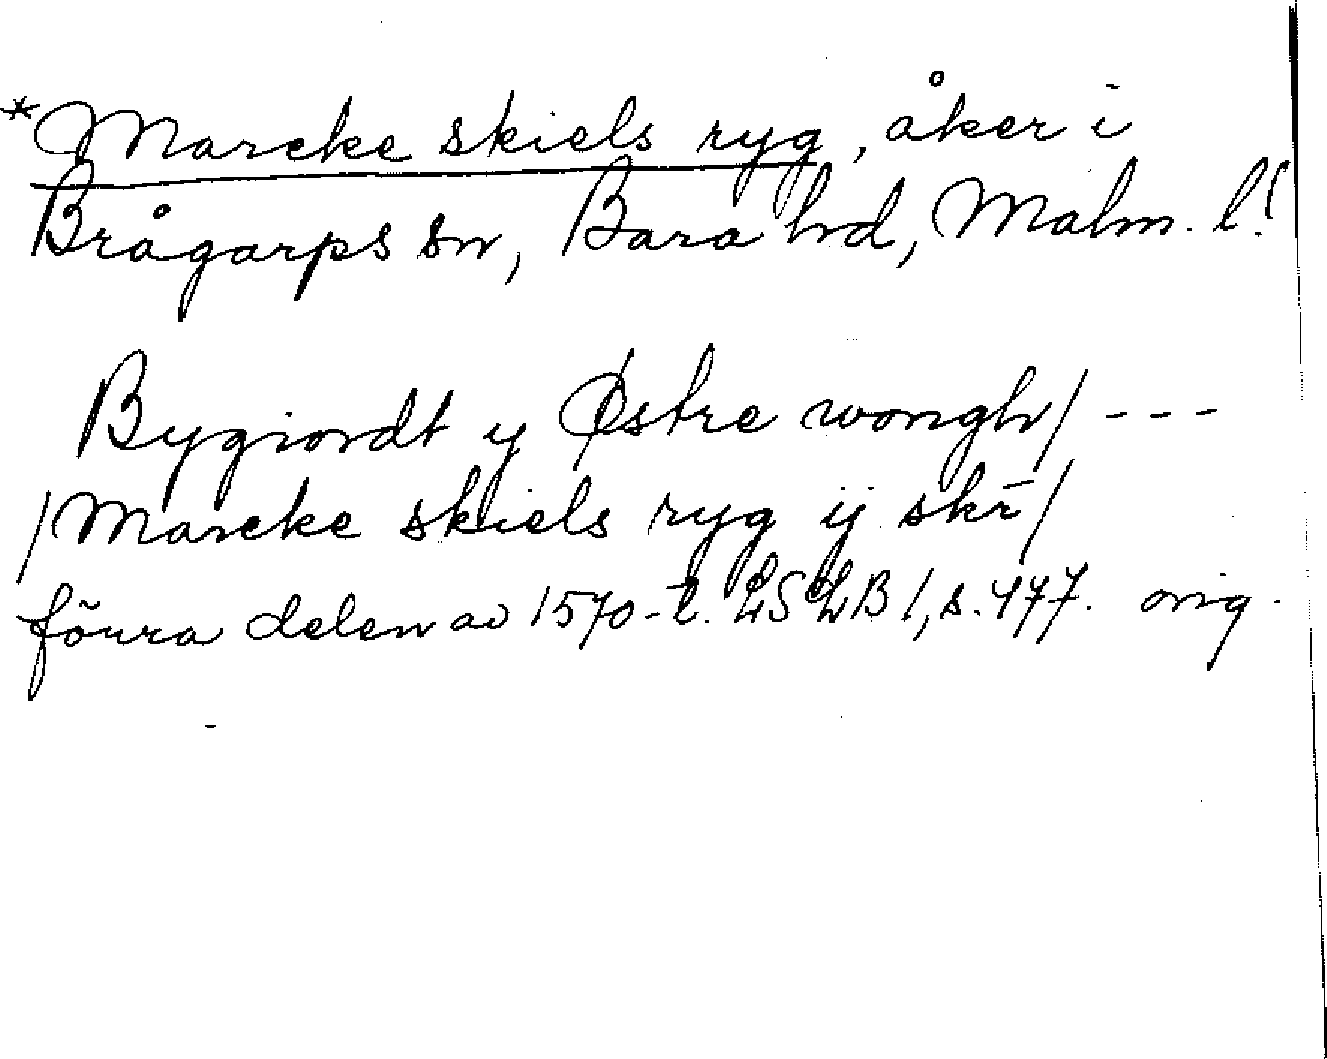 *Marcke skiels ryg, åker i
Brågarps sn, Bara hd, Malm. l.
Bygiordt y Østre wongh/ ---
/Marcke skiels ryg ij skr̄/
förra delen av 1570-t. LSLB 1, s. 477. orig.